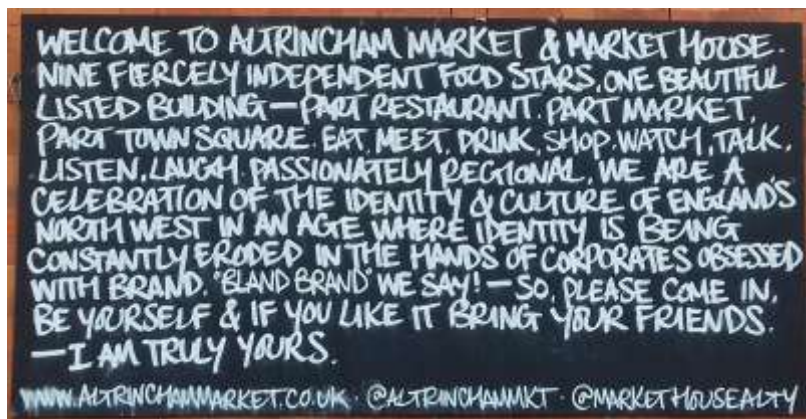 WELCOME TO ALTRINCHAM MARKET & MARKET HOUSE.
NINE FIERCELY INDEPENDENT FOOD STARS, ONE BEAUTIFUL
LISTED BUILDING — PART RESTAURANT. PART MARKET,
PART TOWN SQUARE. EAT, MEET, DRINK, SHOP, WATCH, TALK,
LISTEN, LAUGH. PASSIONATELY REGIONAL, WE ARE A
CELEBRATION OF THE IDENTITY & CULTURE OF ENGLAND'S
NORTH WEST IN AN AGE WHERE IDENTITY IS BEING
CONSTANTLY ERODED IN THE HANDS OF CORPORATES OBSESSED
WITH BRAND. "BLAND BRAND" WE SAY! — SO, PLEASE COME IN,
BE YOURSELF & IF YOU LIKE IT BRING YOUR FRIENDS.
— I AM TRULY YOURS.
WWW.ALTRINCHAMMARKET.CO.UK · @ALTRINCHAMMKT · @MARKETHOUSEALTY